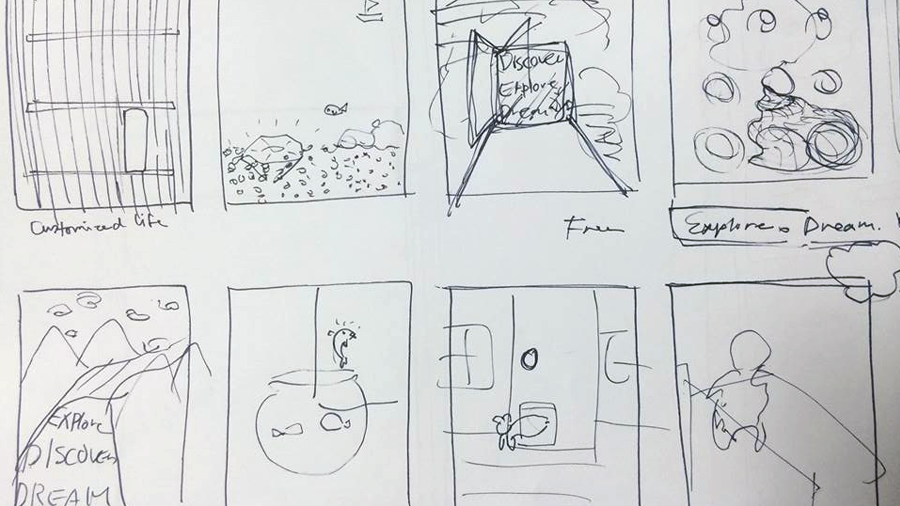 Discover
Explore
Dream
Customized life
Free
Explore. Dream.
EXPlore
DISCOVER
DREAM